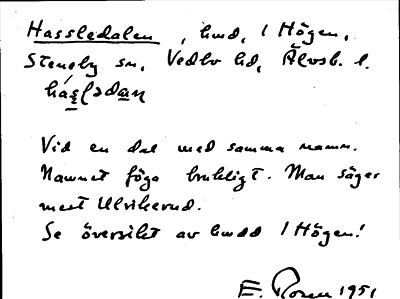 Hassledalen, hmd, 1 Högen,
Steneby sn, Vedbo hd, Älvsb. l.
Vid en dal med samma namn.
Namnet föga brukligt. Man säger
mest Ulrikerud.
Se översikt av hmdd 1 Högen!
E. Rosen 1951